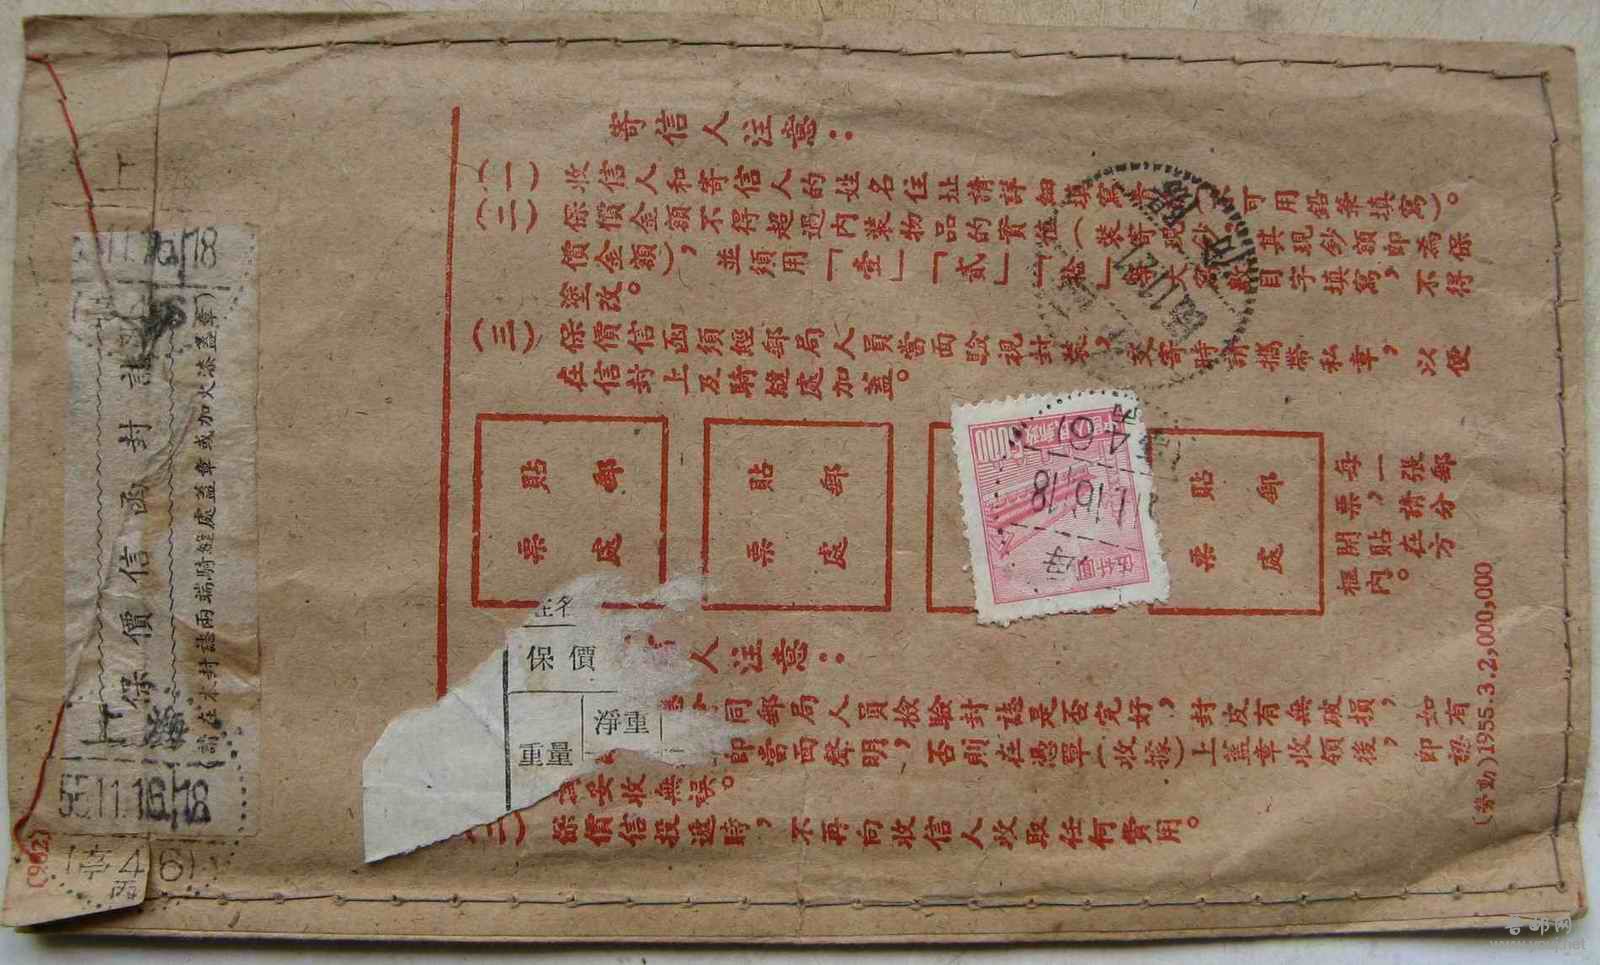 寄信人注意：
（一）收信人和寄信人的姓名住址請詳細填寫 可用鉛筆填寫）。
（二）保價金額不得超過內裝物品的實值（裝寄現鈔，其現鈔額即為保
價金額），並須用「壹」「貳」「叁」等大寫數目字填寫，不得
塗改。
（三）保價信函須經郵局人員當面驗視封裝，交寄時請攜帶私章，以便
在信封上及騎縫處加蓋。
貼郵
票處
貼郵
票處
貼郵
票處
每一張郵
票，請分
開貼在方
框內。
人注意：
同郵局人員檢驗封誌是否完好，封皮有無破損，如有
即當面聲明，否則在憑單（收據）上蓋章收領後，即認
妥收無誤。
（二）保價信投遞時，不再向收信人收取任何費用。
(勞動)1955.3.2,000,000
保價信函封誌
(請在本封誌兩端騎縫處蓋章或加火漆蓋章)
上海
保價
重量
(982)